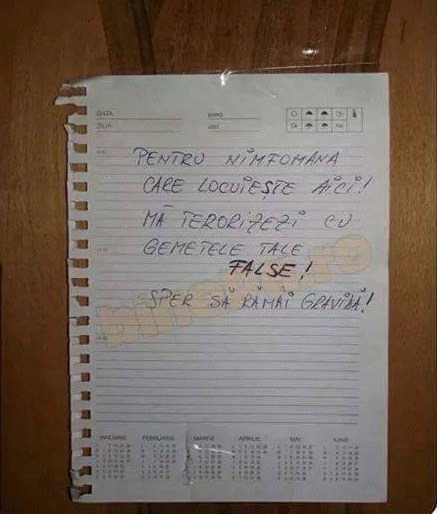 DATA
ZIUA
PENTRU NIMFOMANA
CARE LOCUIEȘTE AICI!
MĂ TERORIZEZI CU
GEMETELE TALE
FALSE!
SPER SĂ RĂMÂI GRAVIDĂ!
IANUARIE FEBRUARIE MARTIE APRILIE MAI IUNIE